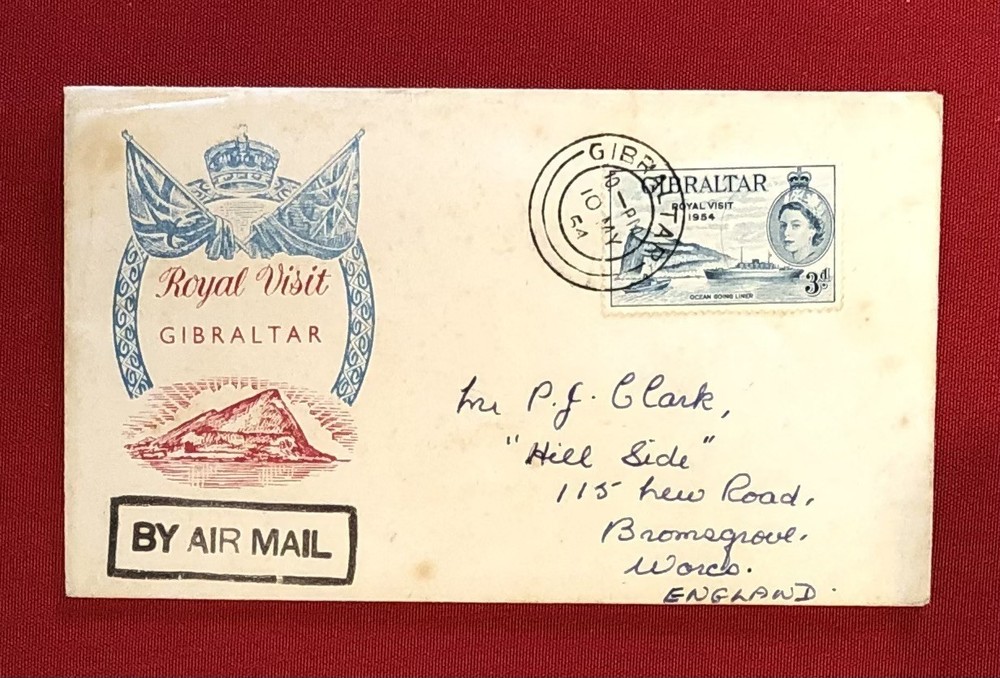 Royal Visit
GIBRALTAR
BY AIR MAIL
GIBRALTAR
10-PM
10 MY
54
GIBRALTAR
ROYAL VISIT
1954
3d
OCEAN GOING LINER
Mr P.J. Clark,
"Hill Side"
115 New Road,
Bromsgrove.
Worcs.
ENGLAND.